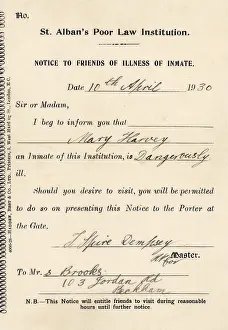 No.
St. Alban's Poor Law Institution.
NOTICE TO FRIENDS OF ILLNESS OF INMATE.
Date 10th April 1930
Sir or Madam,
I beg to inform you that
Mary Harvey
an Inmate of this Institution, is Dangerously
ill.
Should you desire to visit, you will be permitted
to do so on presenting this Notice to the Porter at
the Gate.
J Spire Dempsey
Master.
To Mr. s Brooks
103 Jordan Rd
Peckham.
N.B.—This Notice will entitle friends to visit during reasonable
hours until further notice.